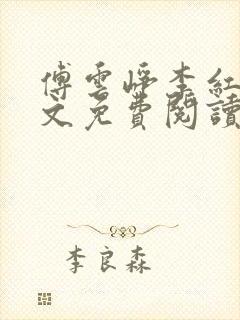 傅雲崢李紅
文免費閱讀
李良森